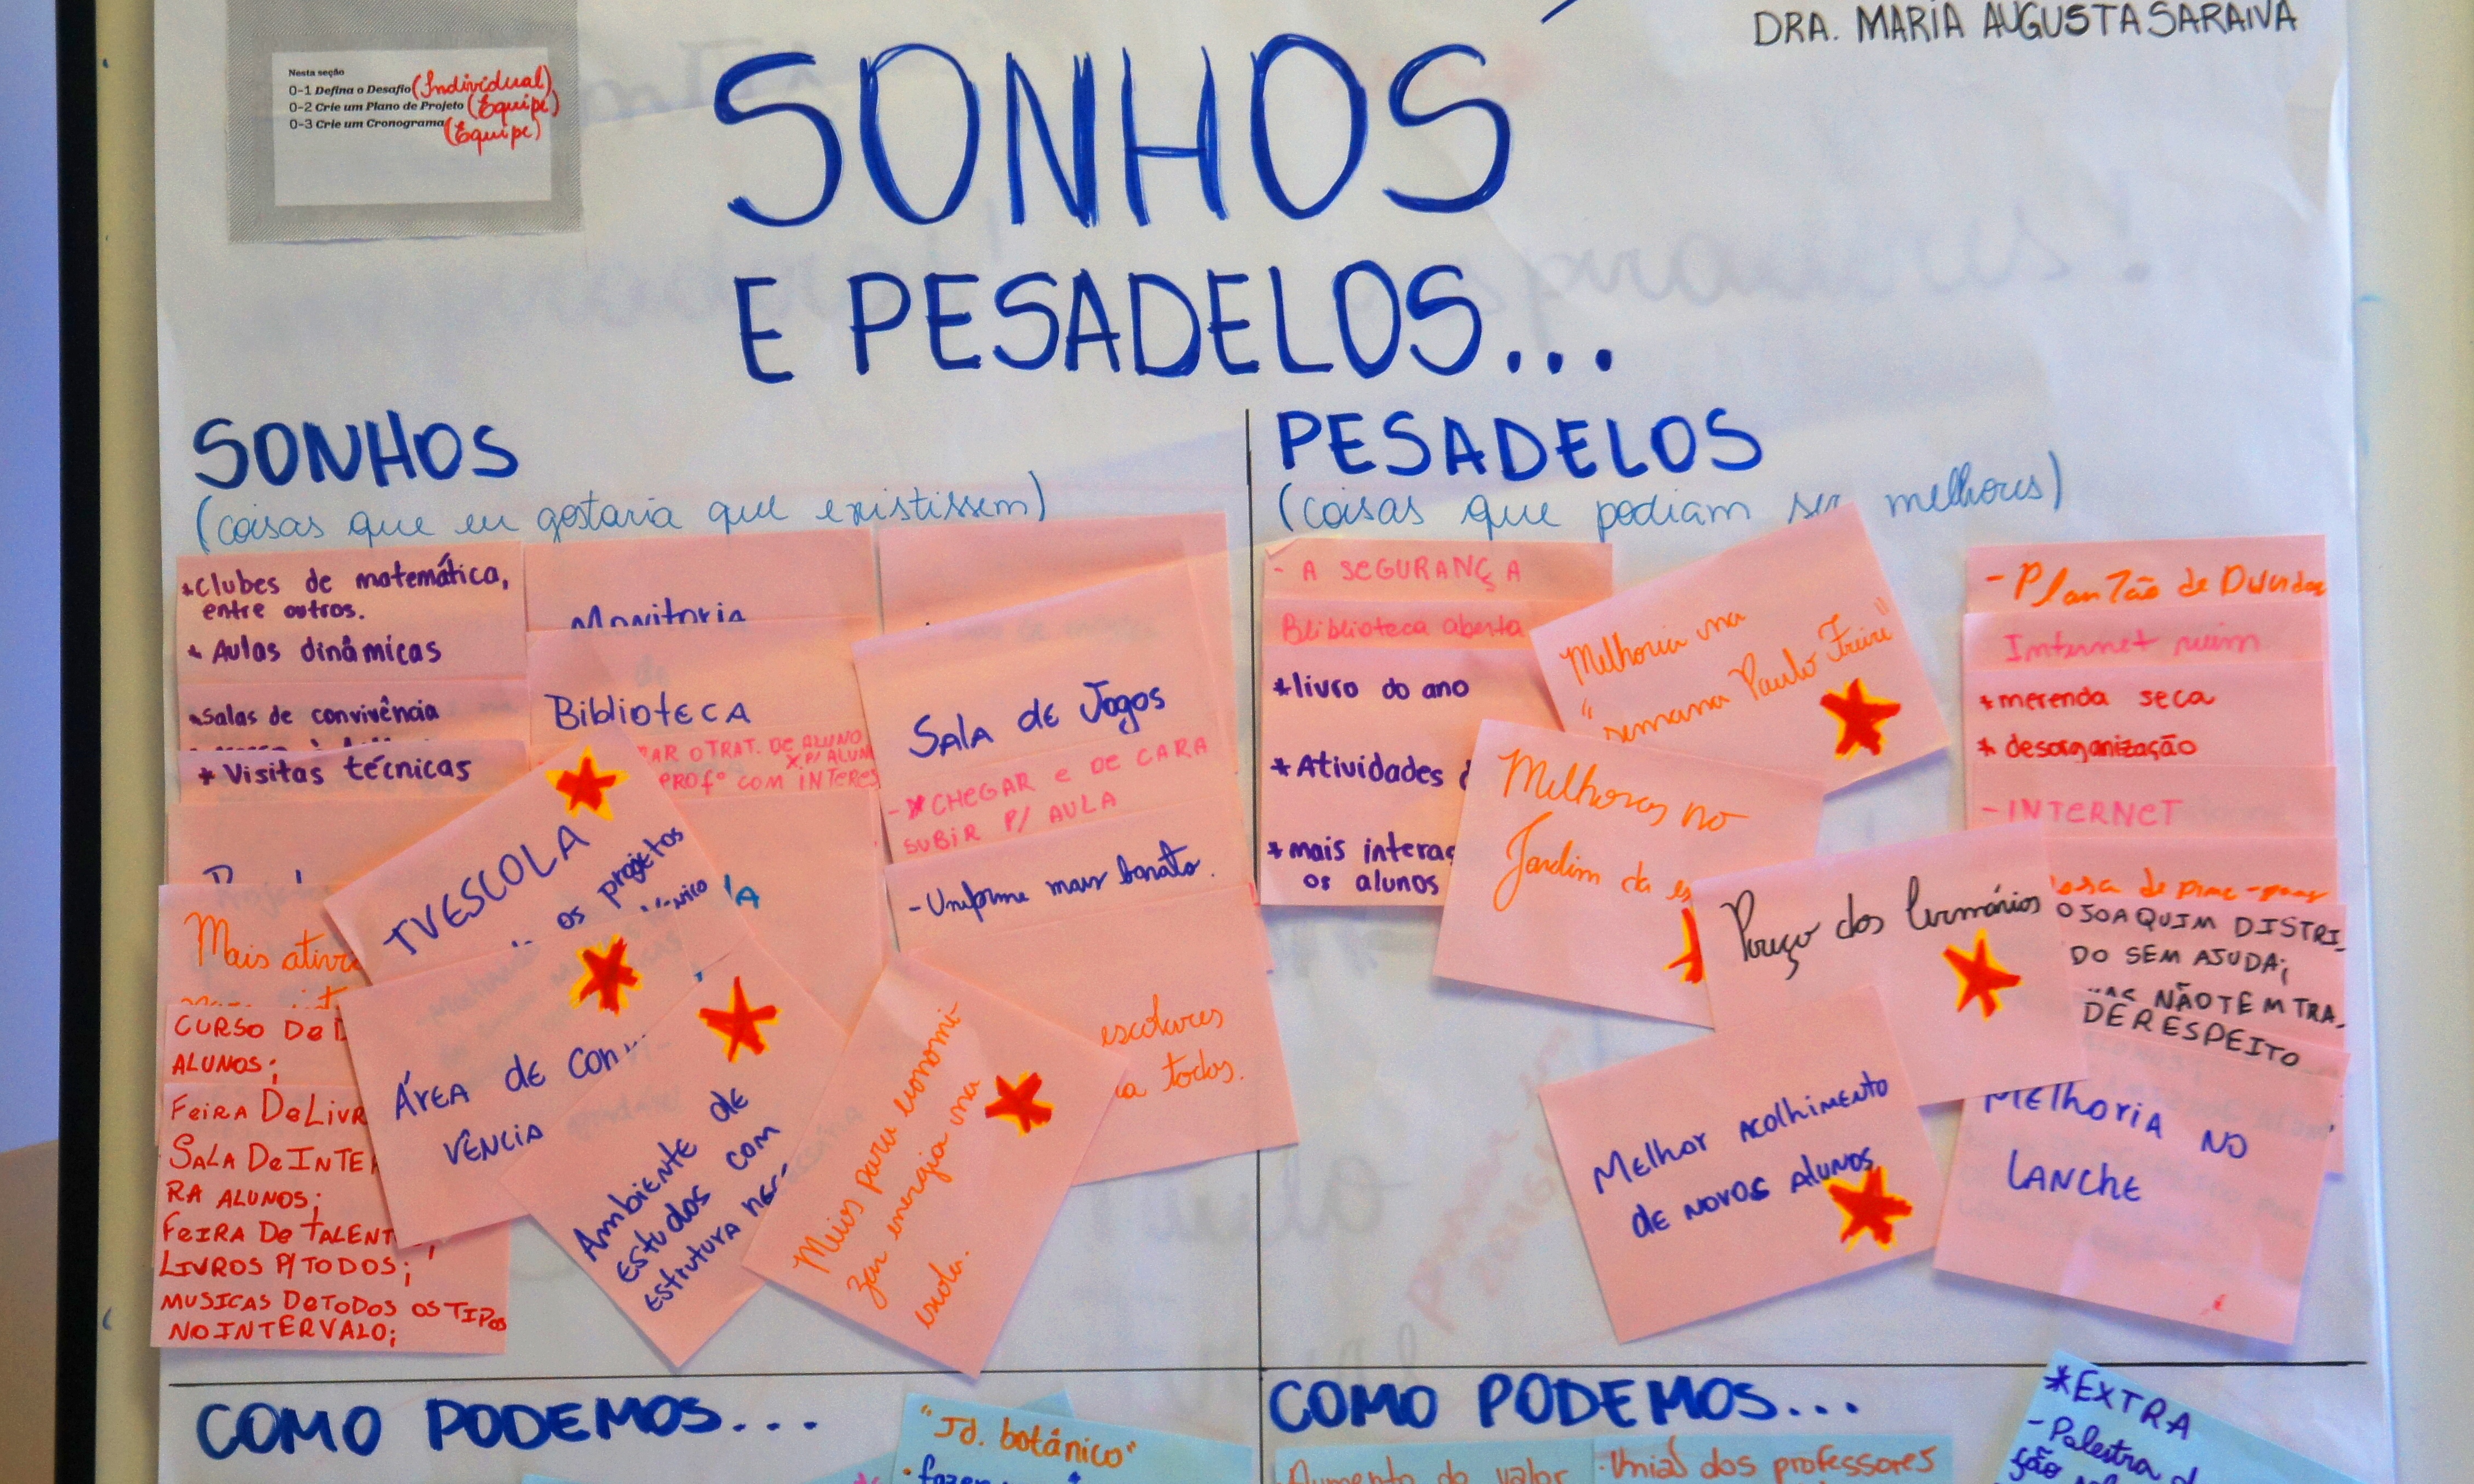 DRA. MARIA AUGUSTA SARAIVA
Nesta seção
0-1 Defina o Desafio (Individual)
0-2 Crie um Plano de Projeto (Equipe)
0-3 Crie um Cronograma (Equipe)
SONHOS
E PESADELOS...
SONHOS
(coisas que eu gostaria que existissem)
*Clubes de matemática,
entre outros.
* Aulas dinâmicas
*Salas de convivência
* Visitas técnicas
Mais
CURSO De
ALUNOS;
FeiRA De
SALA De
RA ALUNOS;
FeiRA De
LIVROS P/ TODOS;
MUSICAS De TODOS OS TIPOS
NO INTERVALO;
Monitoria
BiblioteCA
O TRAT. De ALUNO
X P/
PROFº COM
TVESCOLA
os projetos
ÁREA de CON
VÊNCIA
Ambiente de
Estudos com
Estrutura
SALA de Jogos
- *CHEGAR e De CARA
SUBIR P/ AULA
- Uniforme mais barato.
escolares
a todos.
Meios para economi-
zar energia na
escola.
PESADELOS
(coisas que podiam ser melhores)
- A SEGURANÇA
Bliblioteca aberta
*livro do ano
*Atividades
*mais
os alunos
Melhoria na
"semana Paulo Freire"
Melhoras no
Jardim da
- Plantão de Duvidas
Internet ruim
*merenda seca
* desorganização
- INTERNET
de
O JOAQUIM
DO SEM AJUDA;
NÃO TEM
DE RESPEITO
Pouço dos Armários
Melhor acolhimento
de novos alunos
Melhoria no
LANChe
COMO PODEMOS...
"Jd. botânico"
• fazer
COMO PODEMOS...
Aumento do valor
União dos professores
*EXTRA
- Palestra